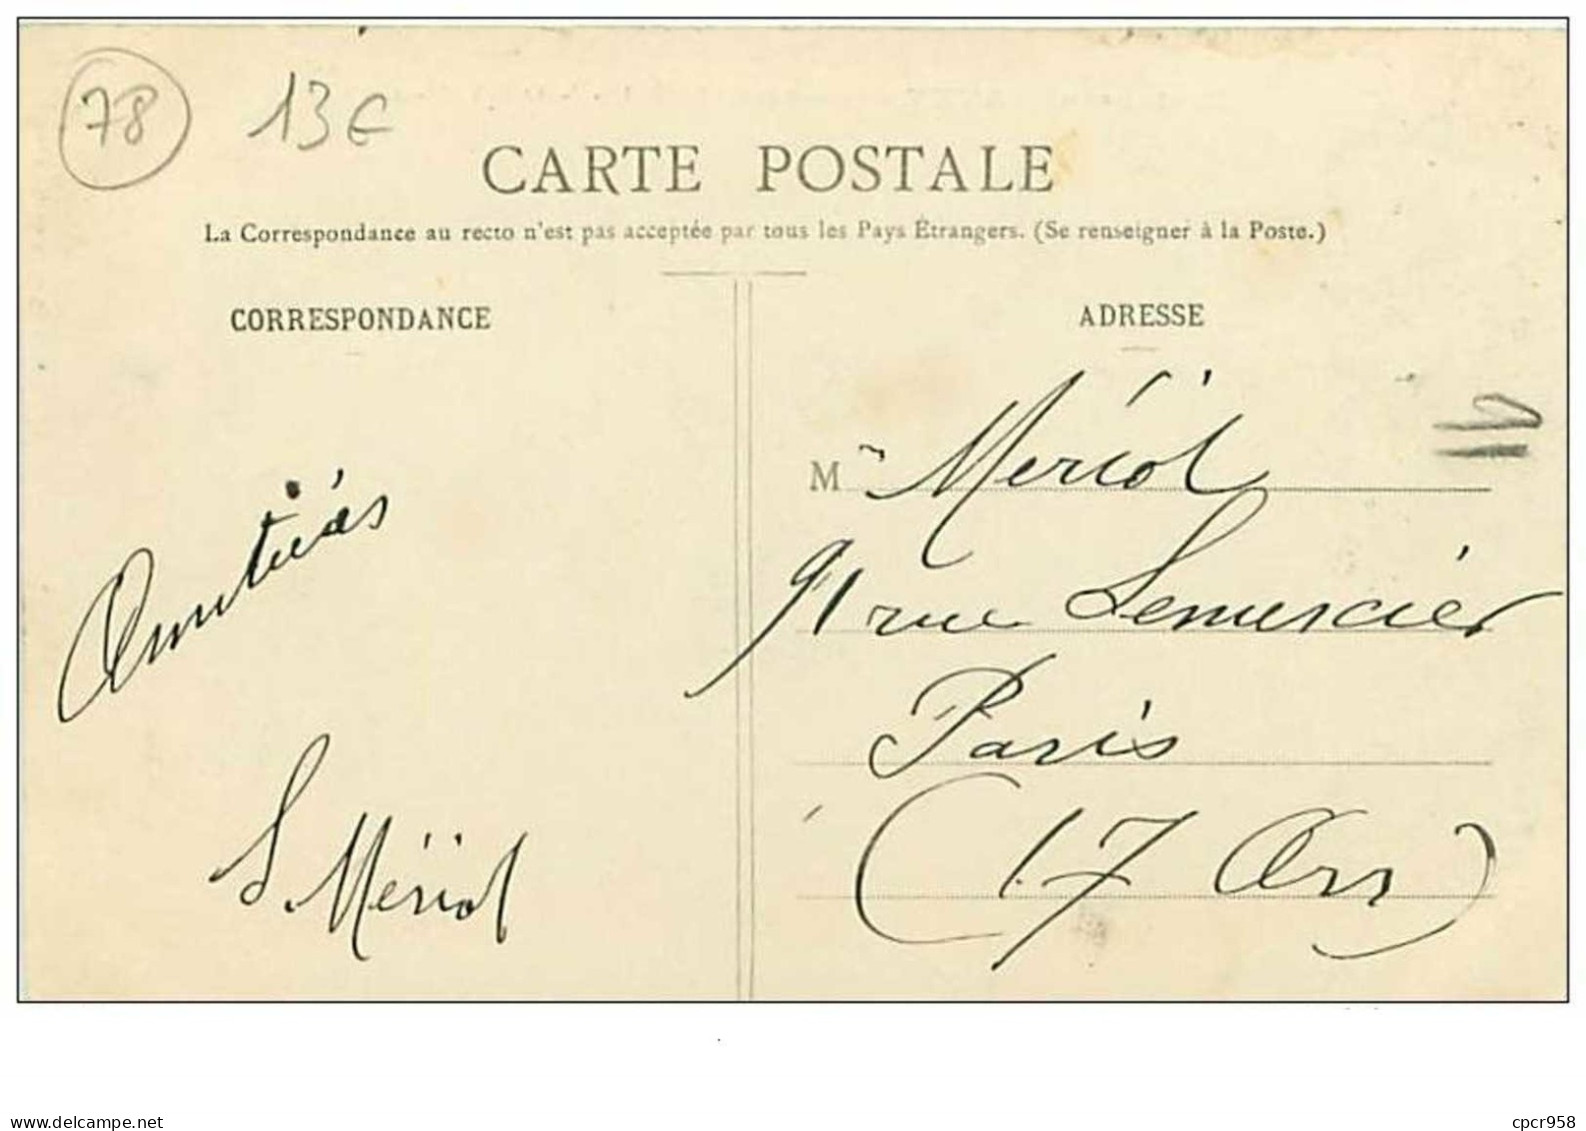 78 13€
CARTE POSTALE
La Correspondance au recto n'est pas acceptée par tous les Pays Étrangers. (Se renseigner à la Poste.)
CORRESPONDANCE
ADRESSE
Amitiés
S. Mériol
M Mériol
91 rue Lemercier
Paris
(17 Arr)
www.delcampe.net
cpcr958